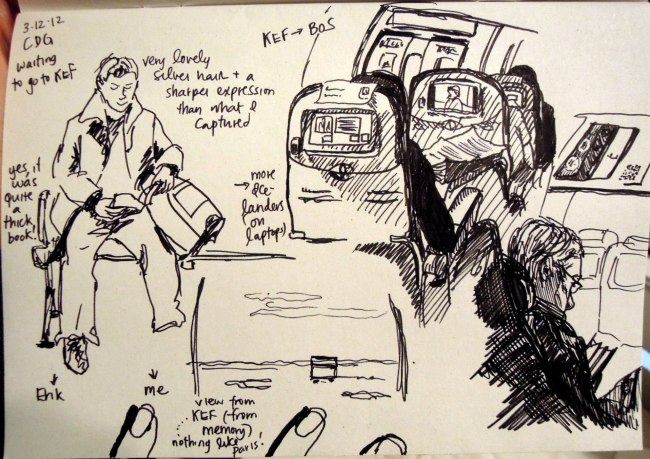 3·12·12
CDG
waiting
to go to KEF
very lovely
silver hair + a
sharper expression
than what I
captured
KEF → BOS
yes, it
was
quite
a
thick
book!
→ more
Ice-
landers
on
laptops)
Erik
me
view from
KEF (from
memory)
nothing like
paris!